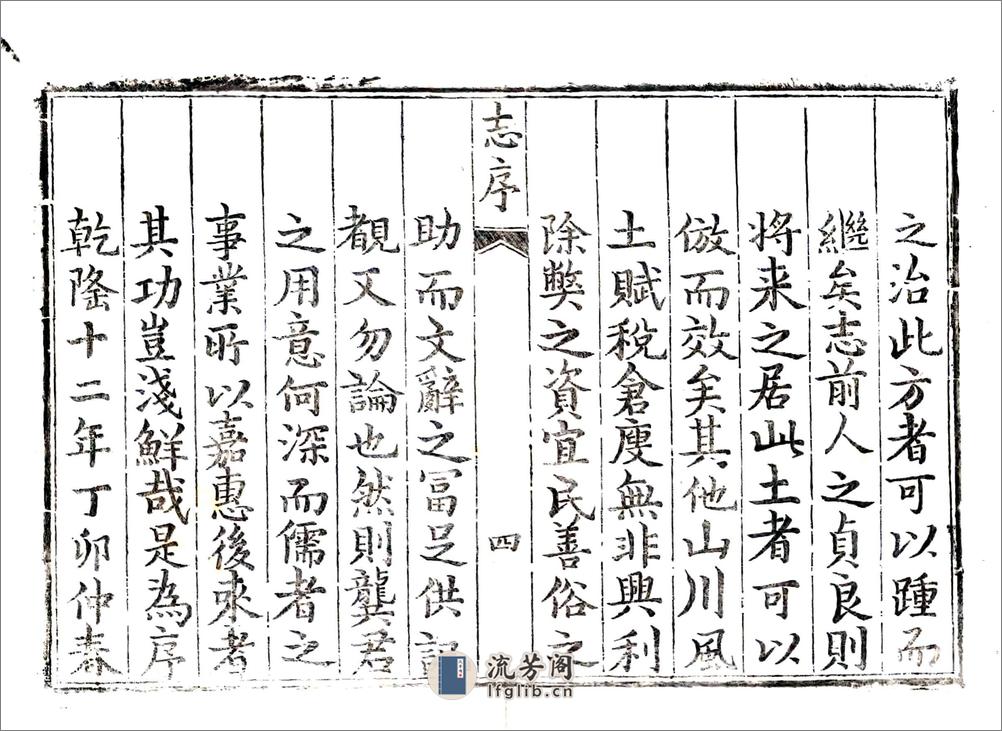 之治此方者可以踵而
繼矣志前人之貞良則
將来之居此土者可以
倣而效矣其他山川風
土賦稅倉庾無非興利
除獘之資宜民善俗之
志序
四
助而文辭之冨足供記
覩又勿論也然則龔君
之用意何深而儒者之
事業所以嘉惠後来者
其功豈淺鮮哉是為序
乾隆十二年丁卯仲春
流芳阁
lfglib.cn